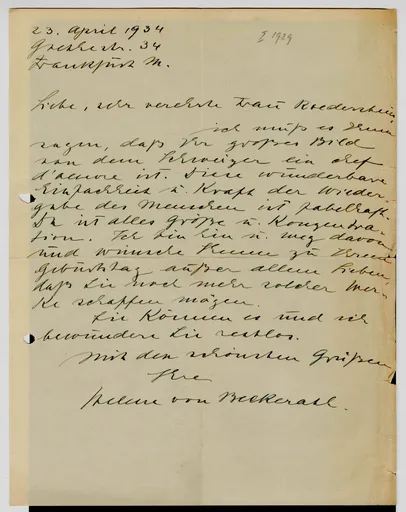 23. April 1934
Goethestr. 34
I 1929
Frankfurt M.
Liebe, sehr verehrte Frau Roederstein,
ich muß es Ihnen
sagen, daß Ihr großes Bild
von dem Schweizer ein chef
d'œuvre ist. Diese wunderbare
Einfachheit u. Kraft der Wieder-
gabe des Menschen ist fabelhaft.
Da ist alles Größe u. Konzentra-
tion. Ich bin hin u. weg davon
und wünsche Ihnen zu Ihrem
Geburtstag außer allem Lieben,
daß Sie noch mehr solcher Wer-
ke schaffen mögen.
Sie können es und ich
bewundere Sie restlos.
Mit den schönsten Grüßen
Ihre
Helene von Beckerath.